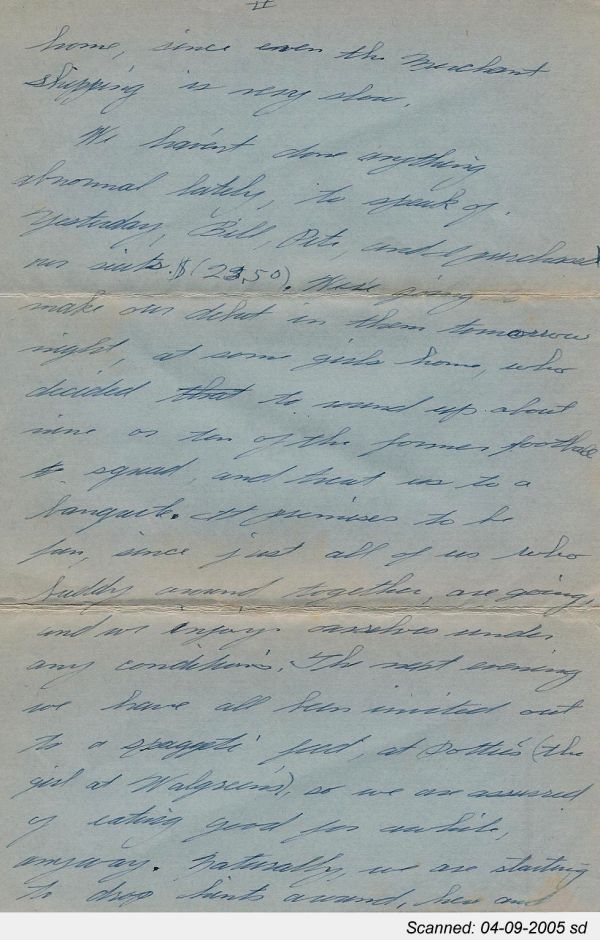 II
home, since even the Merchant
shipping is very slow.
We haven't done anything
abnormal lately, to speak of.
Yesterday, Bill, Pete, and I purchased
our suits. $(23.50). We're going to
make our debut in them tomorrow
night, at some girls home, who
decided that to round up about
nine or ten of the former football
squad, and treat us to a
banquet. It promises to be
fun, since just all of us who
buddy around together, are going,
and we enjoy ourselves under
any conditions. The next evening
we have all been invited out
to a spaggeti feed, at Dotties (the
girl at Walgreens), so we are assured
of eating good for awhile,
anyway. Naturally, we are starting
to drop hints around, here and
Scanned: 04-09-2005 sd